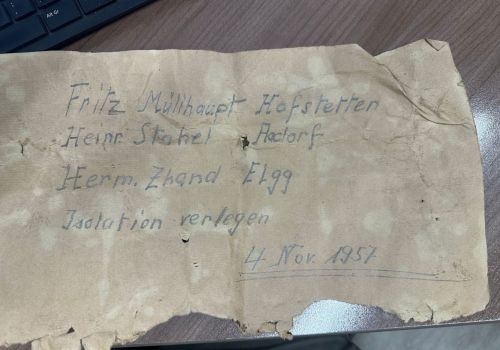 Alt Gr
Fritz Müllhaupt Hofstetten
Heinr Stahel Aadorf
Herm. Zhand Elgg
Isolation verlegen
4 Nov. 1957